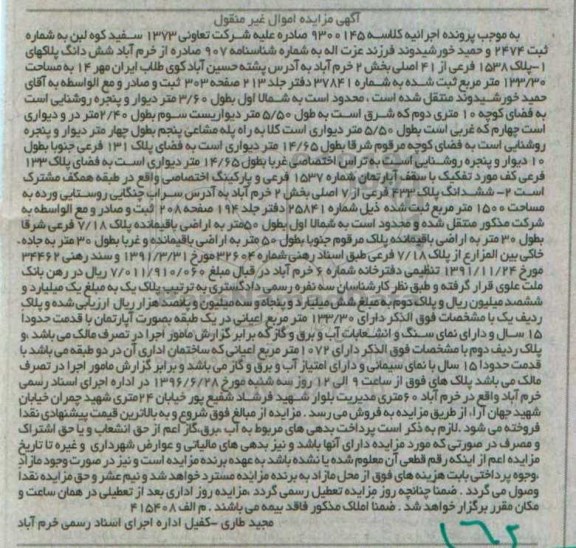 آگهی مزایده اموال غیر منقول
به موجب پرونده اجرائیه کلاسه ۹۳۰۰۱۴۵ صادره علیه شرکت تعاونی ۱۳۷۳ سفید کوه لبن به شماره
ثبت ۲۴۷۴ و حمید خورشیدوند فرزند عزت اله به شماره شناسنامه ۹۰۷ صادره از خرم آباد شش دانگ پلاکهای
۱-پلاک ۱۵۳۸ فرعی از ۴۱ اصلی بخش ۲ خرم آباد به آدرس پشته حسین آباد کوی طلاب ایران مهر ۱۴ به مساحت
۱۳۳/۳۰ متر مربع ثبت شده به شماره ۳۷۸۴۱ دفتر جلد ۲۱۳ صفحه ۳۰۳ ثبت و صادر و مع الواسطه به آقای
حمید خورشیدوند منتقل شده است ، محدود است به شمالا اول بطول ۳/۶۰ متر دیوار و پنجره روشنایی است
به فضای کوچه ۱۰ متری دوم که شرق است به طول ۵/۵۰ متر دیواریست سوم بطول ۲/۴۰ متر در و دیواری
است چهارم که غربی است بطول ۵/۵۰ متر دیواری است کلا به راه پله مشاعی پنجم بطول چهار متر دیوار و پنجره
روشنایی است به فضای کوچه مرقوم شرقا بطول ۱۴/۶۵ متر دیواری است به فضای پلاک ۱۳۱ فرعی جنوبا بطول
۱۰ دیوار و پنجره روشنایی است به تراس اختصاصی غربا بطول ۱۴/۶۵ متر دیواری است به فضای پلاک ۱۳۳
فرعی کف مورد تفکیک با سقف آپارتمان شماره ۱۵۳۷ فرعی و پارکینگ اختصاصی واقع در طبقه همکف مشترک
است ۲- ششدانگ پلاک ۴۳۳ فرعی از ۷ اصلی بخش ۲ خرم آباد به آدرس سراب چنگایی روستایی ورده به
مساحت ۱۵۰۰ متر مربع ثبت شده ذیل شماره ۲۵۸۴۱ دفتر جلد ۱۹۴ صفحه ۲۰۸ ثبت و صادر و مع الواسطه به
شرکت مذکور منتقل شده و محدود است به شمالا اول بطول ۵۰ متر به اراضی باقیمانده پلاک ۷/۱۸ فرعی شرقا
بطول ۳۰ متر به اراضی باقیمانده پلاک مرقوم جنوبا بطول ۵۰ متر به اراضی باقیمانده و غربا بطول ۳۰ متر به جاده
خاکی بین المزارع از پلاک ۷/۱۸ فرعی طبق اسناد رهنی شماره ۳۲۶۰۴ مورخ ۱۳۹۱/۳/۳۱ و سند رهنی ۳۴۴۶۲
مورخ ۱۳۹۱/۱۱/۲۴ تنظیمی دفترخانه شماره ۶ خرم آباد در قبال مبلغ ۷/۰۱۱/۹۱۰/۰۶۰ ریال در رهن بانک
ملت علوی قرار گرفته و طبق نظر کارشناسان سه نفره رسمی دادگستری به ترتیب پلاک یک به مبلغ یک میلیارد و
ششصد میلیون ریال و پلاک دوم به مبلغ شش میلیارد و پنجاه و سه میلیون و پانصد هزار ریال ارزیابی شده و پلاک
ردیف یک با مشخصات فوق الذکر دارای ۱۳۳/۳۰ متر مربع اعیانی در یک طبقه بصورت آپارتمان با قدمت حدودا
۱۵ سال و دارای نمای سنگ و انشعابات آب و برق و گاز که برابر گزارش مامور اجرا در تصرف مالک می باشد ،و
پلاک ردیف دوم با مشخصات فوق الذکر دارای ۱۰۷۲ متر مربع اعیانی که ساختمان اداری آن در دو طبقه می باشد با
قدمت حدودا ۱۵ سال با نمای سیمانی و دارای امتیاز آب و برق و گاز می باشد و برابر گزارش مامور اجرا در تصرف
مالک می باشد پلاک های فوق از ساعت ۹ الی ۱۲ روز سه شنبه مورخ ۱۳۹۶/۶/۲۸ در اداره اجرای اسناد رسمی
خرم آباد واقع در خرم آباد ۶۰متری مدیریت بلوار شهید فرشاد شفیع پور خیابان ۲۴متری شهید چمران خیابان
شهید جهان آرا، از طریق مزایده به فروش می رسد . مزایده از مبالغ فوق شروع و به بالاترین قیمت پیشنهادی نقدا
فروخته می شود .لازم به ذکر است پرداخت بدهی های مربوط به آب ،برق،گاز اعم از حق انشعاب و یا حق اشتراک
و مصرف در صورتی که مورد مزایده دارای آنها باشد و نیز بدهی های مالیاتی و عوارض شهرداری و غیره تا تاریخ
مزایده اعم از اینکه رقم قطعی آن معلوم شده یا نشده باشد به عهده برنده مزایده است و نیز در صورت وجود مازاد
،وجوه پرداختی بابت هزینه های فوق از محل مازاد به برنده مزایده مسترد خواهد شد و نیم عشر و حق مزایده نقدا
وصول می گردد . ضمنا چنانچه روز مزایده تعطیل رسمی گردد ،مزایده روز اداری بعد از تعطیلی در همان ساعت و
مکان مقرر برگزار خواهد شد . ضمنا املاک مذکور فاقد بیمه می باشند . م الف ۴۱۵۴۰۸
مجید طاری -کفیل اداره اجرای اسناد رسمی خرم آباد